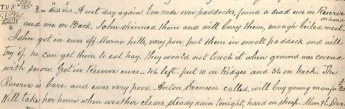 TUES
A wet day again. Con rode over paddocks, found a dead ewe in Reserve
mana
and one on Back. John skinned them and will bury them, enough boiled meat.
John got in ewes off Name hills, very poor, put them in small paddock and will
try if he can get them to eat hay. They would not touch it when ground was covered
with snow. Got in Reserve ewes - 46 left, put 10 on Ridges and 36 on back. The
Reserve is bare and ewes very poor. called, will buy young man's
Will take per home when weather clears, steady rain tonight, hard on sheep.